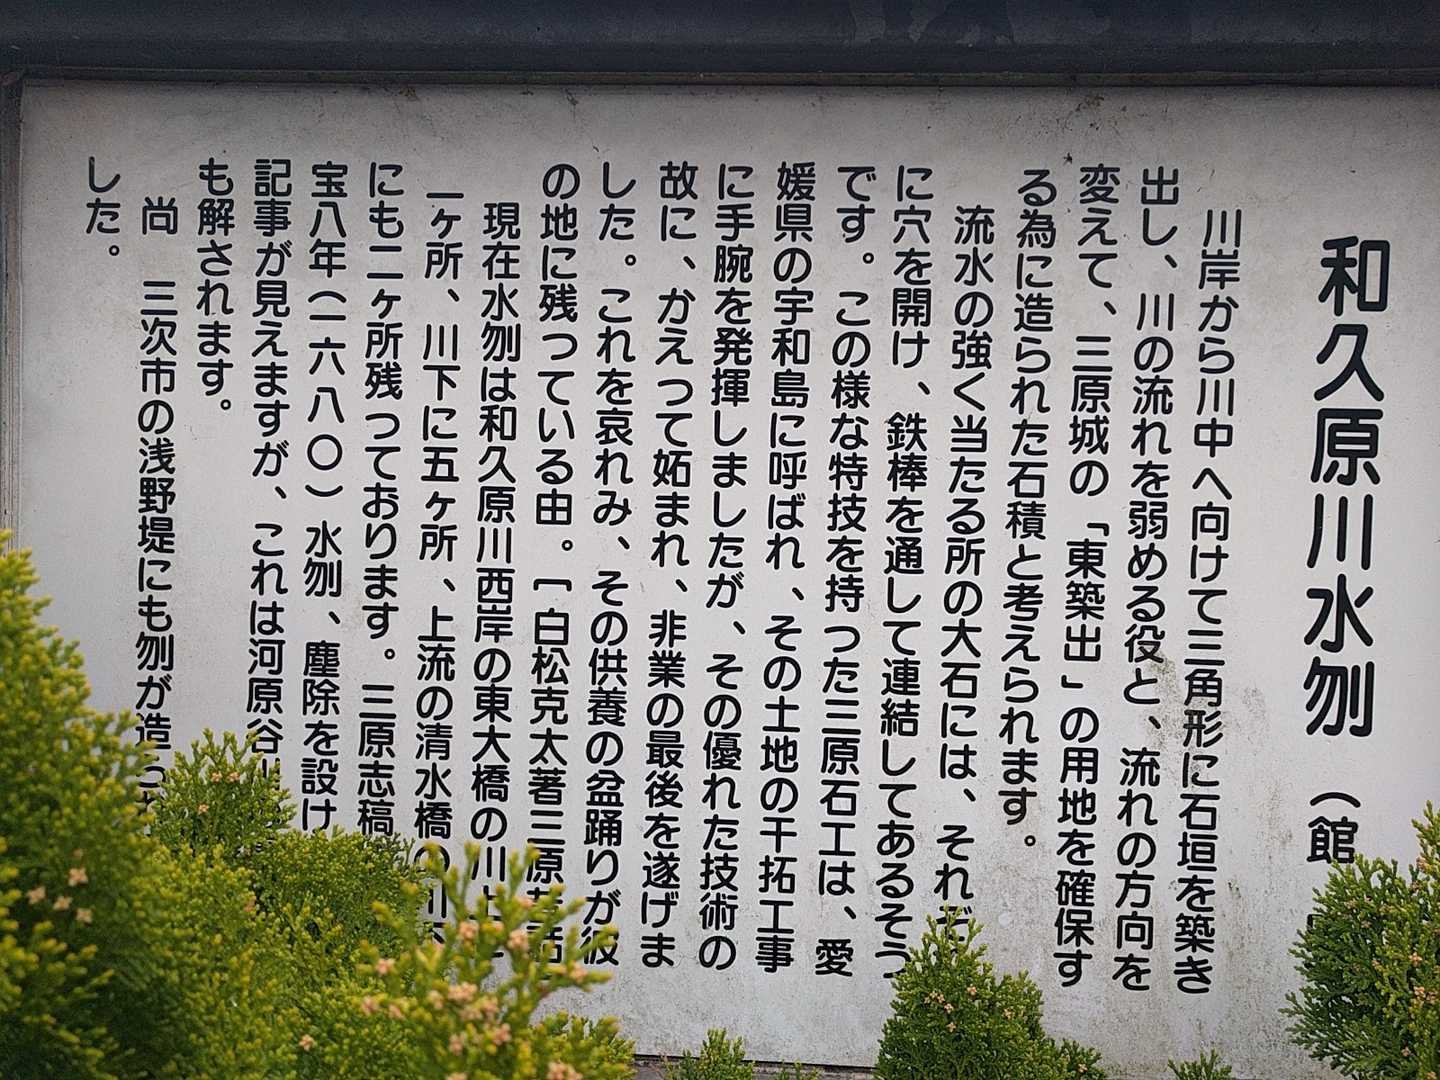 和久原川水刎（館
川岸から川中へ向けて三角形に石垣を築き
出し、川の流れを弱める役と、流れの方向を
変えて、三原城の「東築出」の用地を確保す
る為に造られた石積と考えられます。
流水の強く当たる所の大石には、それぞ
に穴を開け、鉄棒を通して連結してあるそう
です。この様な特技を持った三原石工は、愛
媛県の宇和島に呼ばれ、その土地の干拓工事
に手腕を発揮しましたが、その優れた技術の
故に、かえって妬まれ、非業の最後を遂げま
した。これを哀れみ、その供養の盆踊りが彼
の地に残っている由。〔白松克太著三原昔話
現在水刎は和久原川西岸の東大橋の川上
一ヶ所、川下に五ヶ所、上流の清水橋の川下
にも二ヶ所残っております。三原志稿
宝八年（一六八〇）水刎、塵除を設け
記事が見えますが、これは河原谷
も解されます。
尚　三次市の浅野堤にも刎が造られ
した。